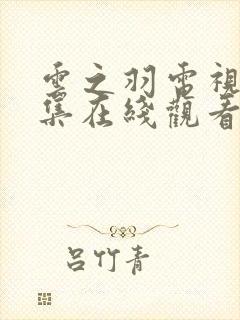 雲之羽電視
集在綫觀看
呂竹青